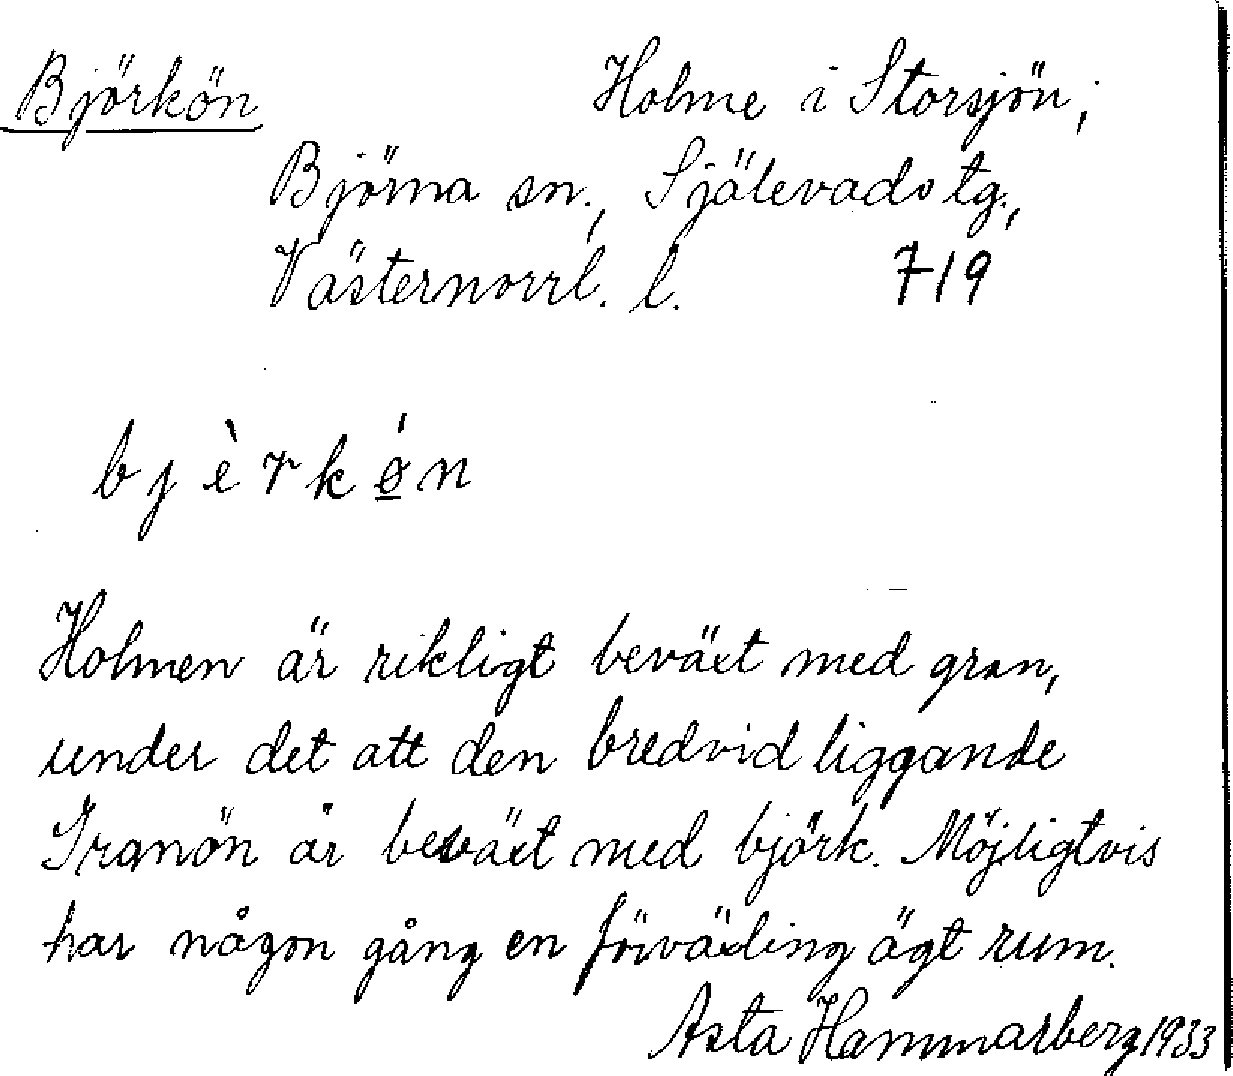 Björkön Holme i Storsjön,
Björna sn., Själevads tg.,
Västernorrl. l. 719
bjèrkǿ̲n
Holmen är rikligt beväxt med gran,
under det att den bredvid liggande
Granön är beväxt med björk. Möjligtvis
har någon gång en förväxling ägt rum.
Asta Hammarberg 1933